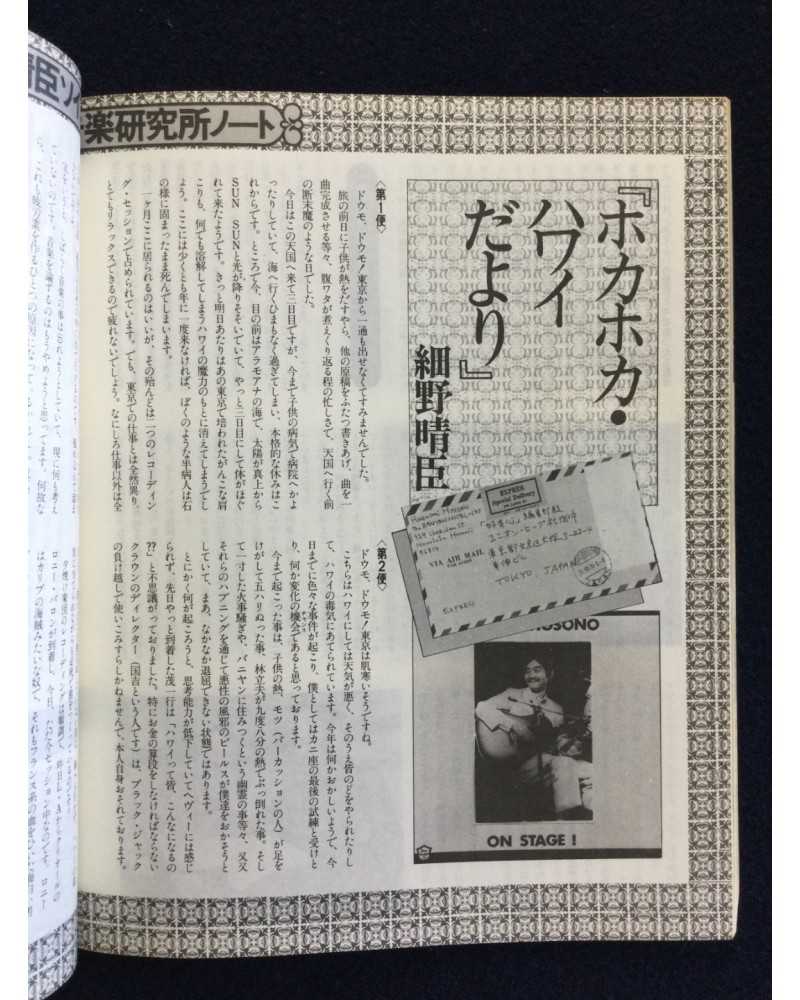 晴臣ソ
楽研究所ノート
『ホカホカ・
ハワイ
だより』
細野晴臣
〈第1便〉
ドウモ、ドウモ！東京から一通も出せなくてすみませんでした。
旅の前日に子供が熱をだすやら、他の原稿をふたつ書きあげ、曲を一
曲完成させる等々、腹ワタが煮えくり返る程の忙しさで、天国へ行く前
の断末魔のような日でした。
今日はこの天国へ来て三日目ですが、今まで子供の病気で病院へかよ
ったりしていて、海へ行くひまもなく過ぎてしまい、本格的な休みはこ
れからです。ところで今、目の前はアラモアナの海で、太陽が真上から
SUN SUNと光が降りそそいでいて、やっと三日目にして体がほぐ
れて来たようです。きっと明日あたりはあの東京で培われたがんこな肩
こりも、何でも溶解してしまうハワイの魔力のもとに消えてしまうでし
ょう。ここには少くとも年に一度来なければ、ぼくのような半病人は石
の様に固まったまま死んでしまいます。
一ヶ月ここに居られるのはいいが、その殆んどは二つのレコーディン
グ・セッションで占められています。でも、東京での仕事とは全然異り、
とてもリラックスできるので疲れないでしょう。なにしろ仕事以外は全
〈第2便〉
ドウモ、ドウモ！東京は肌寒いそうですね。
こちらはハワイにしては天気が悪く、そのうえ皆のどをやられたりし
て、ハワイの毒気にあてられています。今年は何かおかしいようで、今
日までに色々な事件が起こり、僕としてはカニ座の最後の試練と受けと
り、何か変化の機会であると思っております。
チャンス
今まで起こった事は、子供の熱、モツ（パーカッションの人）が足を
けがして五ハリぬった事、林立夫が九度八分の熱でぶっ倒れた事。そし
て一寸した火事騒ぎや、バニヤンに住みつくという幽霊の事等々、又又
それらのハプニングを通じて悪性の風邪のビールスが僕達をおかそうと
していて、まあ、なかなか退屈できない状態ではあります。
とにかく何が起ころうと、思考能力が低下していてヘヴィーには感じ
られず、先日やっと到着した茂一行は「ハワイって皆、こんなになるの
??」と不思議がっておりました。特にお金の算段をしなければならない
クラウンのディレクター（国吉という人です）は、ブラック・ジャック
の負け越しで使いこみすらしかねませんで、本人自身おそれております。
EXPRESS
Special Delivery
VIA AIR MAIL
TOKYO, JAPAN
EXPRESS
OSONO
ON STAGE !